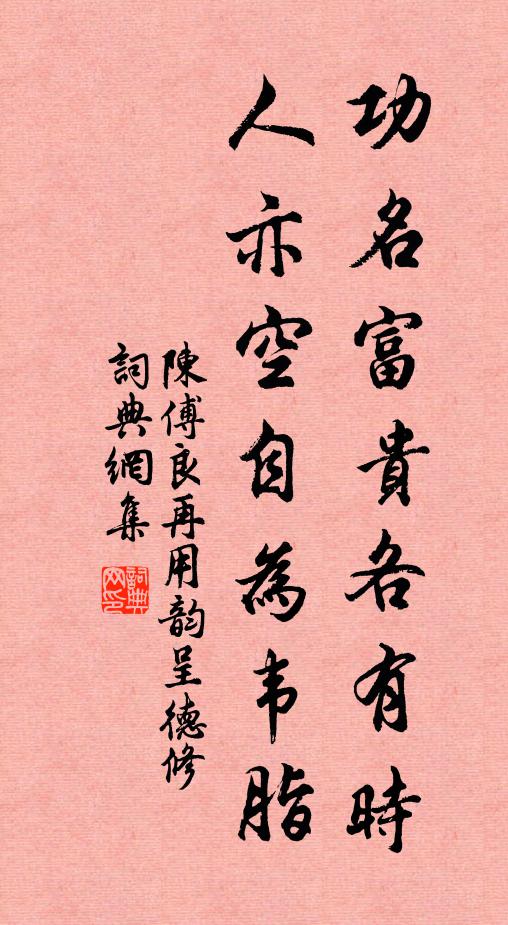 功名富貴各有時
人亦空自為韦脂
陳傅良再用韵呈德修
詞典網集
詞典网印